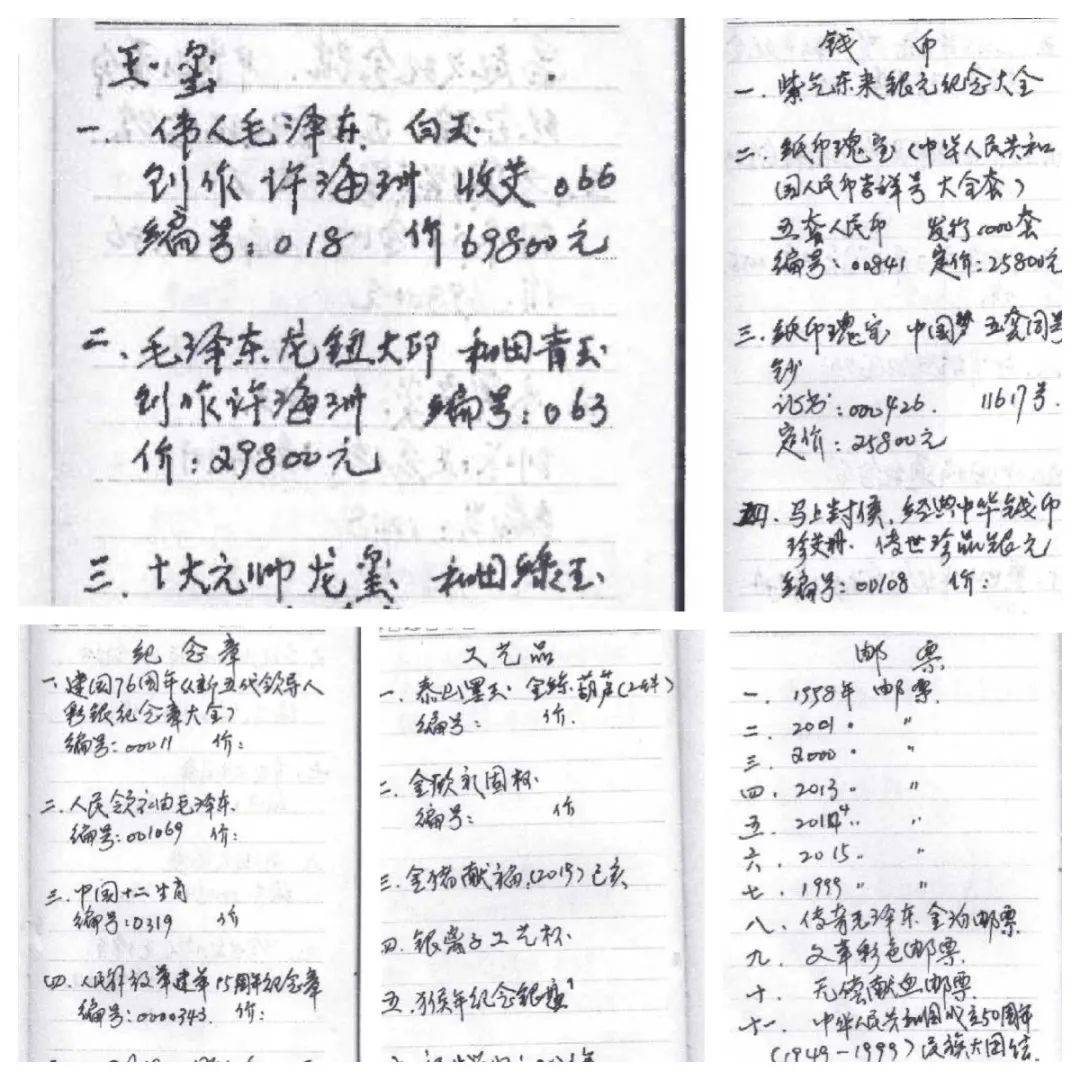 玉玺
一、伟人毛泽东 白玉
创作 许海洲 收英 066
编号:018 价 69800元
二、毛泽东龙钮大印 和田青玉
创作许海洲 编号:063
价:29800元
三、十大元帅龙玺 和田绿玉
钱币
一、紫气东来银元纪念大全
二、纸币瑰宝(中华人民共和
国人民币吉祥号 大全套)
五套人民币 发行1000套
编号:00841 定价:25800元
三、纸币瑰宝 中国梦 五套同号
钞
证书:000426. 11617号.
定价:25800元
四、马上封侯,经典中华钱币
珍藏册 传世珍品银元
编号:00108 价:
纪念章
一、建国76周年《新五代领导人
彩银纪念章大全》
编号:00011 价:
二、人民领袖毛泽东
编号:001069 价:
三、中国十二生肖
编号:0319 价
四、人民解放军建军95周年纪念章
编号:0000343 价:
工艺品
一、泰山墨玉 金蟾 葫芦(2件)
编号: 价.
二、金欧永固杯
编号: 价
三、金猪献福(2019)己亥
四、银离子工艺杯
五、猴年纪念银
邮票
一、1998年 邮票
二、2001 〃 〃
三、2000 〃 〃
四、2013 〃 〃
五、2014 〃 〃
六、2015 〃 〃
七、1999 〃 〃
八、传奇毛泽东金泊邮票
九、文革彩色邮票
十、无偿献血邮票
十一、中华人民共和国成立50周年
(1949-1999)民族大团结